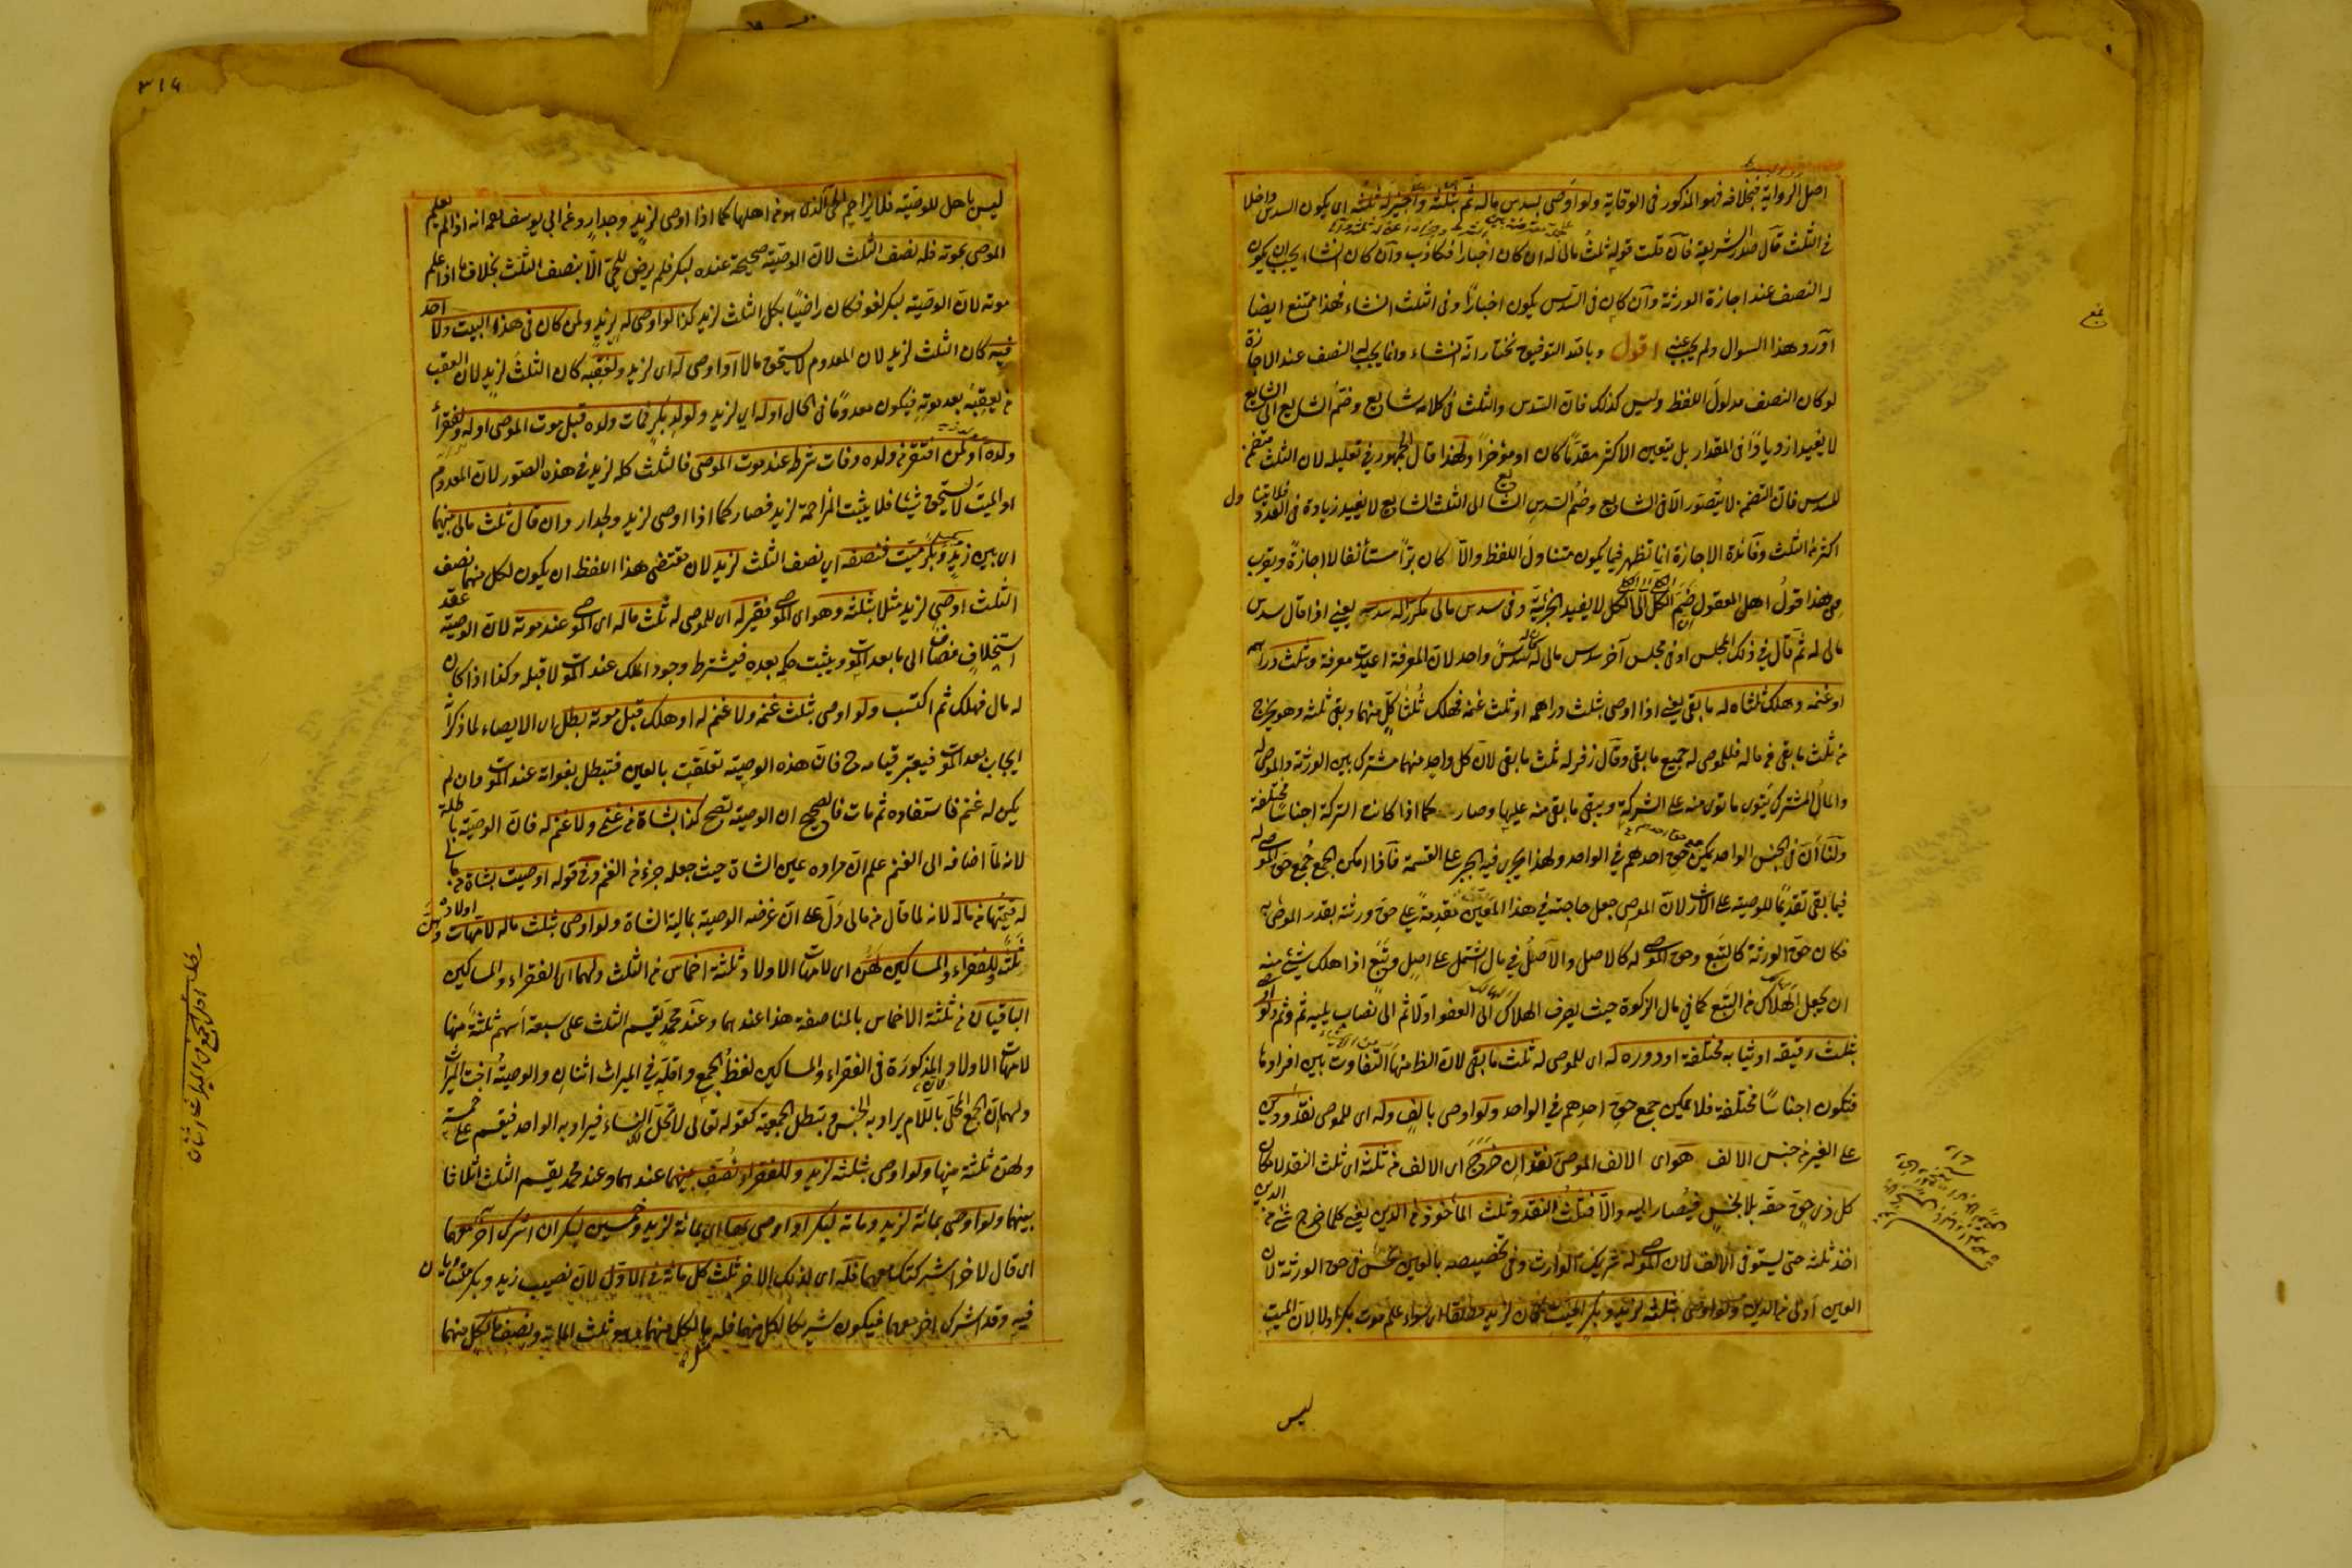 اصل الرواية فبخلافه فهو المذكور في الوقاية ولو اوصى بسدس ماله ثم بثلثه واجيز له ثلثه اى يكون السدس داخلا
في الثلث قال صدر الشريعة فان قلت قوله ثلث مالى له ان كان اخبارا فكاذب وان كان انشاء يجب ان يكون
له النصف عند اجازة الورثة وان كان في السدس يكون اخبارا وفى الثلث انشاء فهذا ممتنع ايضا
اورد هذا السوال ولم يجب عنه اقول وبالله التوفيق نختار انه انشاء وانما يجب له النصف عند الاجازة
لو كان النصف مدلول اللفظ وليس كذلك فان السدس والثلث في كلامه شايع وضم الشايع الى الشايع
لا يفيد ازديادا في المقدار بل يتعين الاكثر مقدما كان او مؤخرا ولهذا قال الجمهور في تعليله لان الثلث متضمن
للسدس فان التضمن لا يتصور الا في الشايع وضم السدس الشايع الى الثلث الشايع لا يفيد زيادة في العدد فلا يتناول
اكثر من الثلث وفائدة الاجازة انما تظهر فيما يكون متناول اللفظ والا كان برا مستأنفا لا اجازة ويقرب
من هذا قول اهل المعقول ضم الكلى الى الكلى لا يفيد الجزئية وفى سدس مالى مكررا له سدس يعنى اذا قال سدس
مالى له ثم قال في ذلك المجلس او في مجلس آخر سدس مالى له كان له سدس واحد لان المعرفة اعيدت معرفة وبثلث دراهمه
او غنمه وهلك ثلثاه له ما بقى يعنى اذا اوصى بثلث دراهمه او ثلث غنمه فهلك ثلثا كل منهما وبقى ثلثه وهو يخرج
من ثلث ما بقى من ماله فللموصى له جميع ما بقى وقال زفر له ثلث ما بقى لان كل واحد منهما مشترك بين الورثة والموصى له
والمال المشترك يتوى ما توى منه على الشركة ويبقى ما بقى منه عليها وصار كما اذا كانت التركة اجناسا مختلفة
ولنا ان في الجنس الواحد يمكن جمع حق احدهم في الواحد ولهذا يجرى فيه الجبر على القسمة فاذا امكن الجمع جمع حق الموصى له
فيما بقى تقديما للوصية على الارث لان الموصى جعل حاجته في هذا المعين مقدمة على حق ورثته بقدر الموصى به
فكان حق الورثة كالتبع وحق الموصى له كالاصل والاصل في مال اشتمل على اصل وتبع اذا هلك شئ منه
ان يجعل الهلاك من التبع كما في مال الزكوة حيث يصرف الهلاك الى العفو اولا ثم الى نصاب يليه ثم وثم ولو اوصى
بثلث رقيقه او ثيابه مختلفة او دوره له اى للموصى له ثلث ما بقى لان الظ منها التفاوت بين افرادها
فتكون اجناسا مختلفة فلا يمكن جمع حق احدهم في الواحد ولو اوصى بالف وله اى للموصى نقد ودين
على الغير من جنس الالف هو اى الالف الموصى نقد ان خرج اى الالف من ثلثه اى ثلث النقد لامكان
كل ذى حق حقه بلا بخس فيصار اليه والا فثلث النقد وثلث المأخوذ من الدين يعنى كلما خرج شئ من الدين
اخذ ثلثه حتى يستوفى الالف لان الموصى له شريك الوارث وفى تخصيصه بالعين بخس في حق الورثة لان
العين اولى من الدين ولو اوصى بثلثه لزيد وبكر الميت كان لزيد مطلقا اى سواء علم موت بكر اولا لان الميت
ليس
٣١٤
ليس باهل للوصية فلا يزاحم الحى الذى هو من اهلها كما اذا اوصى لزيد وجدار وعن ابى يوسف رحمه انه اذا لم يعلم
الموصى بموته فله نصف الثلث لان الوصية صحيحة عنده لبكر فلم يرض للحى الا بنصف الثلث بخلاف ما اذا علم
موته لان الوصية لبكر لغو فكان راضيا بكل الثلث لزيد كذا لو اوصى له لزيد ولمن كان في هذا البيت ولا احد
فيه كان الثلث لزيد لان المعدوم لا يستحق مالا او اوصى له اى لزيد ولعقبه كان الثلث لزيد لان العقب
من يعقبه بعد موته فيكون معدوما في الحال او له اى لزيد ولولد بكر فمات ولده قبل موت الموصى او له ولفقراء
ولده او لمن افتقر من ولده وفات شرطه عند موت الموصى فالثلث كله لزيد في هذه الصور لان المعدوم
او الميت لا يستحق شيئا فلا يثبت المزاحمة لزيد فصار كما اذا اوصى لزيد ولجدار وان قال ثلث مالى بينهما
اى بين زيد وبكر ميت فنصفه اى نصف الثلث لزيد لان مقتضى هذا اللفظ ان يكون لكل منهما نصف
الثلث اوصى لزيد مثلا بثلثه وهو اى الموصى فقير له اى للموصى له ثلث ماله اى الموصى عند موته لان الوصية عقد
استخلاف مضاف الى ما بعد الموت ويثبت حكمه بعده فيشترط وجود الملك عند الموت لا قبله وكذا اذا كان
له مال فهلك ثم اكتسب ولو اوصى بثلث غنمه ولا غنم له او هلك قبل موته بطل اى الايصاء لما ذكر انه
ايجاب بعد الموت فيعتبر قيامه ح فان هذه الوصية تعلقت بالعين فتبطل بفواته عند الموت وان لم
يكن له غنم فاستفاده ثم مات فالصحيح ان الوصية تصح كذا بشاة من غنمى ولا غنم له فان الوصية باطلة
لانه لما اضافه الى الغنم علم ان مراده عين الشاة حيث جعله جزء من الغنم وفى قوله اوصيت بشاة من مالى
له قيمتها من ماله لانه لما قال من مالى دل على ان غرضه الوصية بمالية الشاة ولو اوصى بثلث ماله لامهات اولاده وهن
ثلثة وللفقراء والمساكين لهن اى لامهات الاولاد ثلثة اخماس من الثلث ولهما اى الفقراء والمساكين
الباقيان من ثلثة الاخماس بالمناصفة هذا عندهما وعند محمد يقسم الثلث على سبعة اسهم ثلثة منها
لامهات الاولاد المذكورة في الفقراء والمساكين لفظ الجمع واقله في الميراث اثنان والوصية اخت الميراث
ولهما ان الجمع المحلى باللام يراد به الجنس وتبطل الجمعية كقوله تعالى لا تحل لك النساء فيراد به الواحد فيقسم على خمسة
ولهن ثلثة منها ولو اوصى بثلثه لزيد وللفقراء نصف بينهما عندهما وعند محمد يقسم الثلث اثلاثا
بينهما ولو اوصى بمائة لزيد ومائة لبكر او اوصى بها اى بمائة لزيد وخمسين لبكر ان اشرك آخر معهما
اى قال لاخر اشركتك معهما فله اى لذلك الاخر ثلث كل مائة في الاول لان نصيب زيد وبكر متساويان
فيه وقد اشرك اخر معهما فيكون شريكا لكل منهما فله ما لكل منهما وهو ثلث المائة ونصف ما لكل منهما
مطلب اقل الجمع في الميراث اثنان